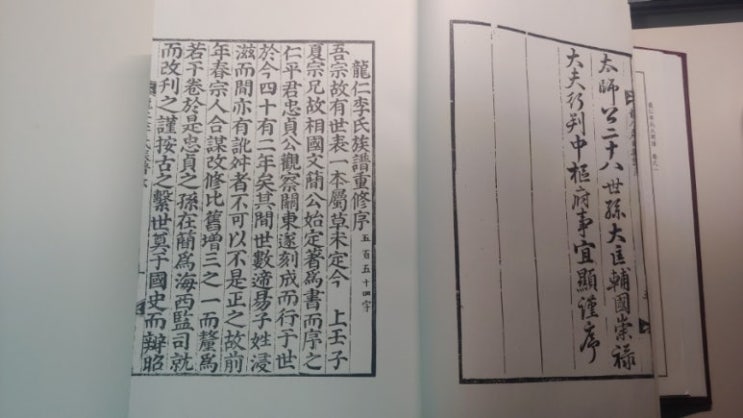 太師公二十八世孫大匡輔國崇祿
大夫行判中樞府事宜顯謹序
龍仁李氏族譜重修序 五百五十四字
吾宗故有世表一本屬草未定今 上壬子
夏宗兄故相國文簡公始定著爲書而序之
仁平君忠貞公觀察關東遂刻成而行于世
於今四十有二年矣其間世數遞易子姓浸
滋而間亦有訛舛者不可以不是正之故前
年春宗人合謀改修比舊增三之一而釐爲
若干卷於是忠貞之孫在簡爲海西監司就
而改刊之謹按古之繫世奠于國史而辨昭